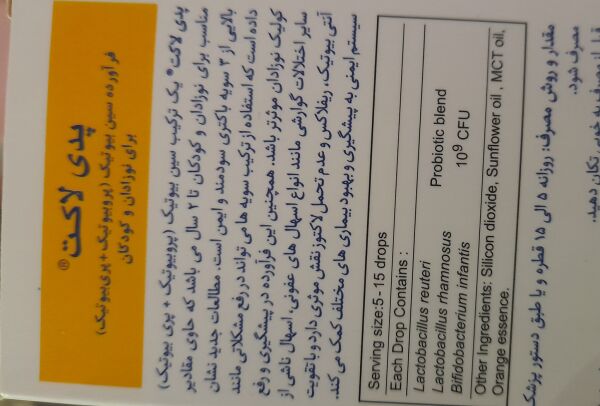 پدی لاکت®
فرآورده سین بیوتیک (پروبیوتیک + پری‌بیوتیک)
برای نوزادان و کودکان
پدی لاکت® یک ترکیب سین بیوتیک (پروبیوتیک + پری بیوتیک)
مناسب برای نوزادان و کودکان تا ۲ سال می باشد که حاوی مقادیر
بالایی از ۳ سویه باکتری سودمند و ایمن است. مطالعات جدید نشان
داده است که استفاده از ترکیب سویه ها می تواند در رفع مشکلاتی مانند
کولیک نوزادان موثرتر باشد. همچنین این فرآورده در پیشگیری و رفع
سایر اختلالات گوارشی مانند انواع اسهال های عفونی، اسهال ناشی از
آنتی بیوتیک، ریفلاکس و عدم تحمل لاکتوز نقش موثری دارد و با تقویت
سیستم ایمنی به پیشگیری و بهبود بیماری های مختلف کمک می کند.
Serving size:5-15 drops
Each Drop Contains :
Lactobacillus reuteri
Lactobacillus rhamnosus Probiotic blend
Bifidobacterium infantis 10⁹ CFU
Other Ingredients: Silicon dioxide, Sunflower oil , MCT oil,
Orange essence.
مقدار و روش مصرف: روزانه ۵ الی ۱۵ قطره و یا طبق دستور پزشک
مصرف شود.
قبل از مصرف به خوبی تکان دهید.